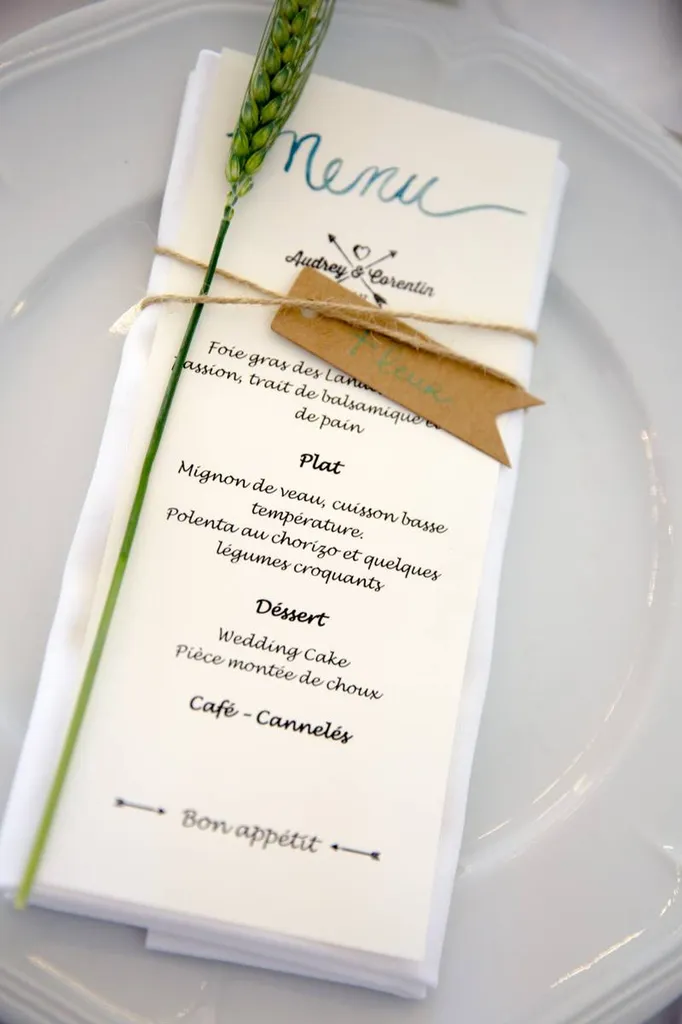 Menu
Audrey & Corentin
Foie gras des
passion, trait de balsamique et
de pain
Plat
Mignon de veau, cuisson basse
température.
Polenta au chorizo et quelques
légumes croquants
Déssert
Wedding Cake
Pièce montée de choux
Café - Cannelés
Bon appétit